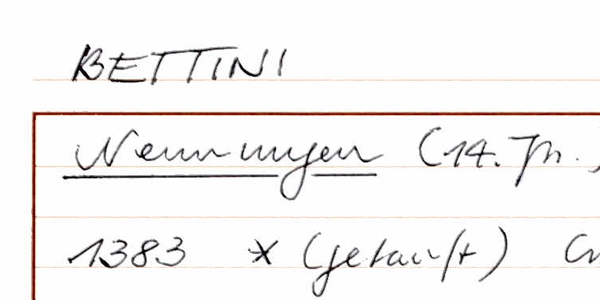 BETTINI
Nennungen (14. Jh.)
1383 * (getauft)